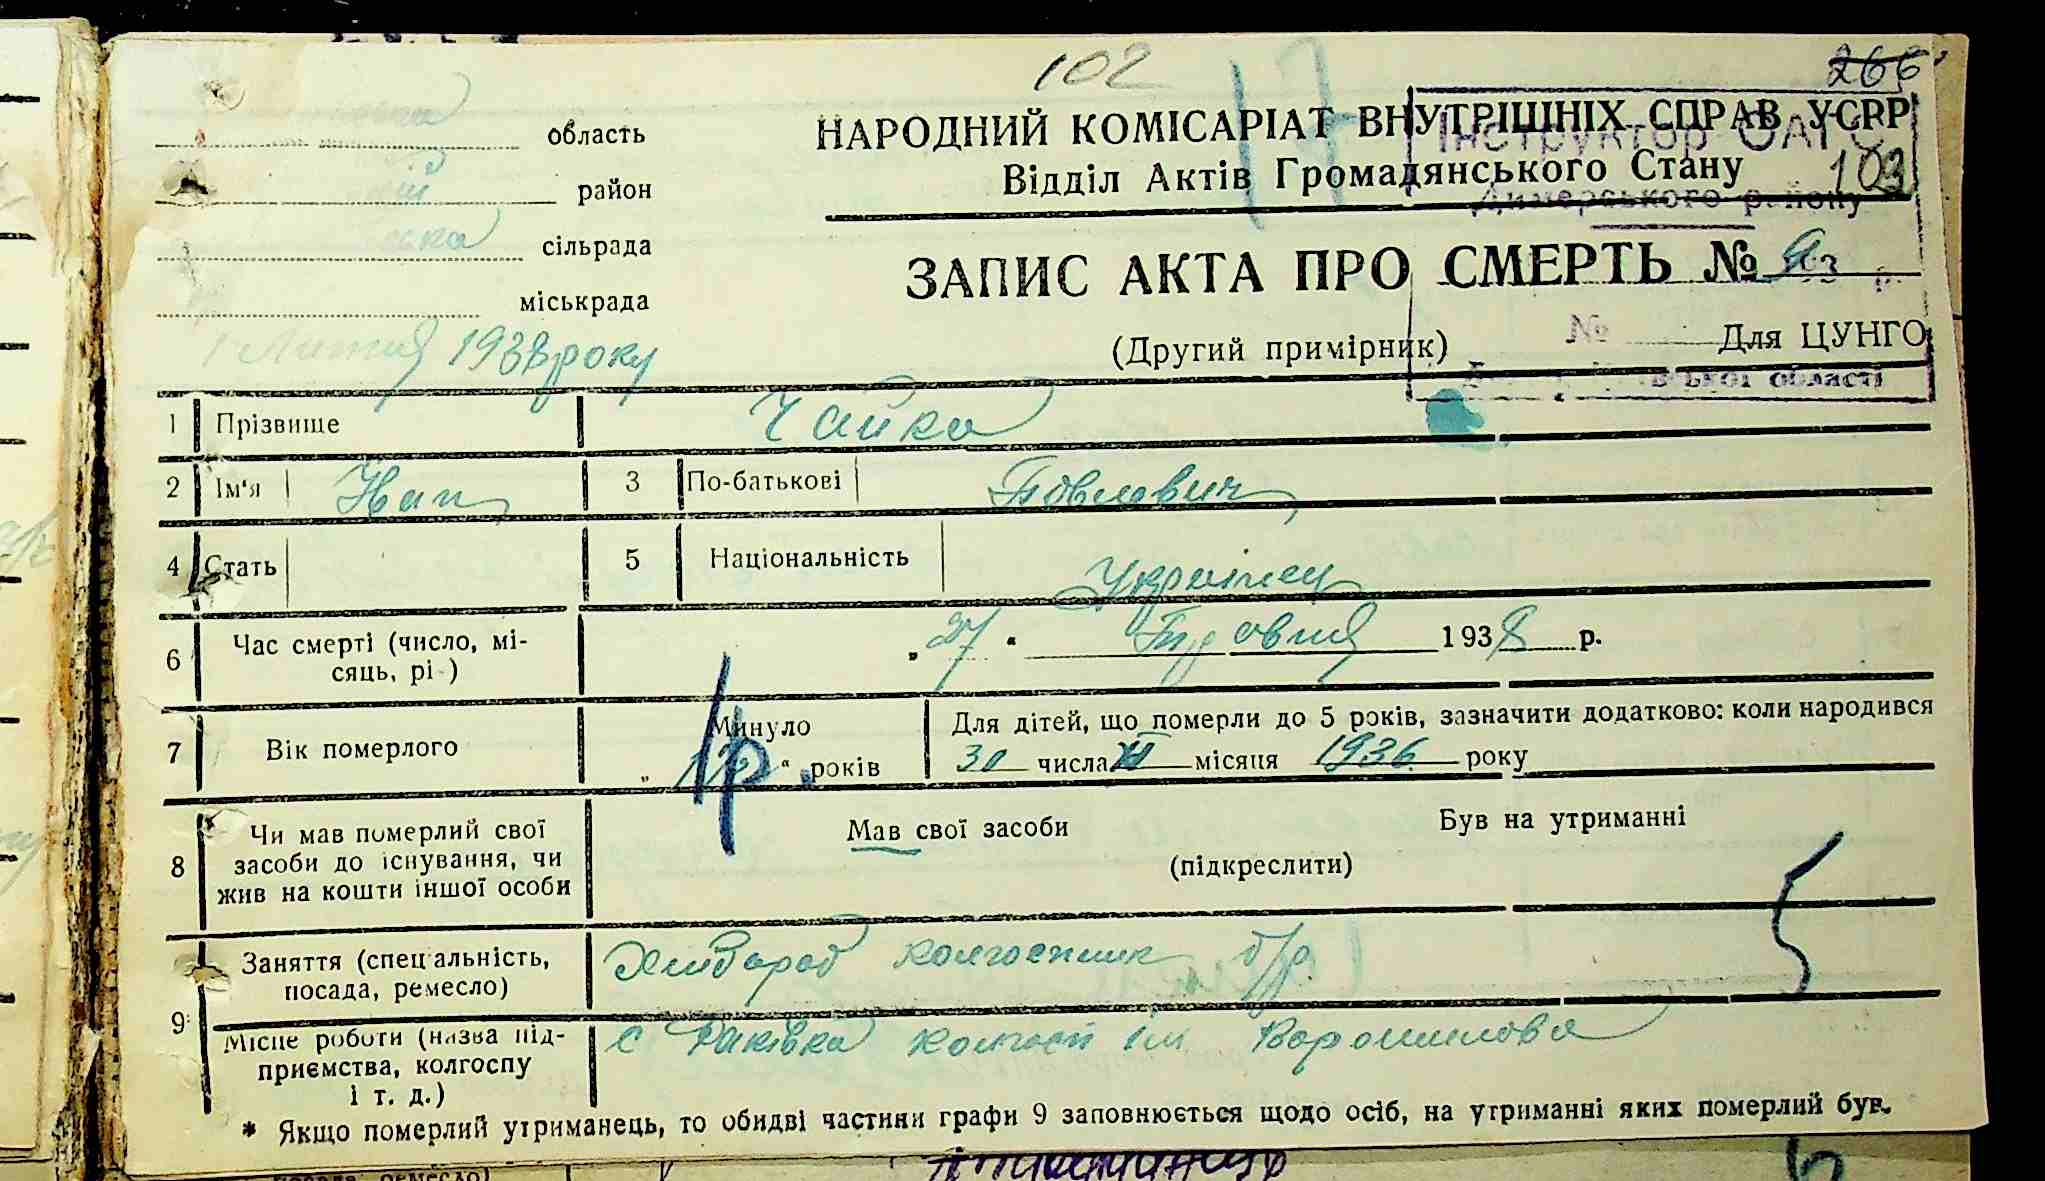 102
266
область
НАРОДНИЙ КОМІСАРІАТ ВНУТРІШНІХ СПРАВ УСРР
Інструктор ОАГС
район
Відділ Актів Громадянського Стану
103
Димерського району
сільрада
ЗАПИС АКТА ПРО СМЕРТЬ №
193 р.
міськрада
№
(Другий примірник)
Для ЦУНГО
1 Лютня 1938 року
ської області
1 Прізвище Чайка
2 Ім'я 3 По-батькові Повлович
4 Стать 5 Національність Українец
6 Час смерті (число, мі-
сяць, рі )
„ 27 “ 1938 р.
7 Вік померлого
Минуло
„ “ років
1р.
Для дітей, що померли до 5 років, зазначити додатково: коли народився
30 числа XI місяця 1936 року
8 Чи мав померлий свої
засоби до існування, чи
жив на кошти іншої особи
Мав свої засоби Був на утриманні
(підкреслити)
9 Заняття (спеціальність,
посада, ремесло)
Хлібороб колгоспник б/р.
Місце роботи (назва під-
приємства, колгоспу
і т. д.)
с Раківка колгосп ім Ворошилова
* Якщо померлий утриманець, то обидві частини графи 9 заповнюється щодо осіб, на утриманні яких померлий був.